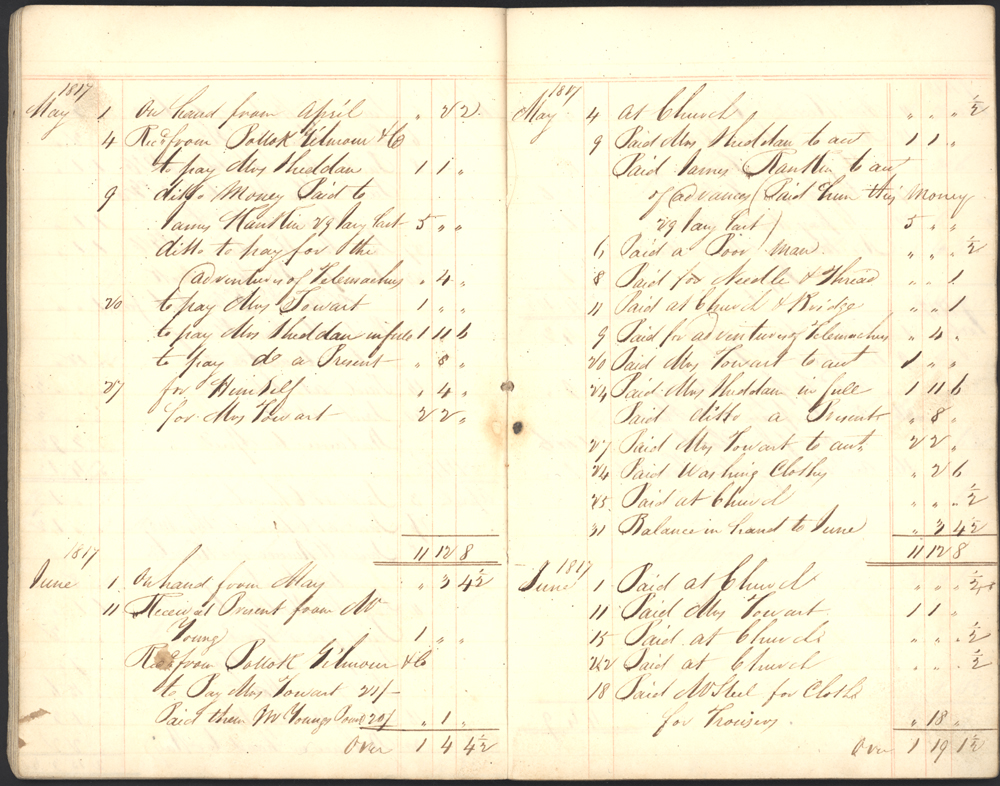 1817
May 1 On hand from April „ 2 2
4 Recd from Pollok Gilmour & Co
to pay Mrs Sheddan 1 1 „
9 ditto Money Paid to
James Rankin 29 Jany last 5 „ „
ditto to pay for the
Adventures of Telemachus „ 4 „
20 to pay Mrs Towart 1 „ „
to pay Mrs Sheddan in full 1 11 6
to pay do a Present „ 8 „
27 for Himself „ 4 „
for Mrs Towart 2 2 „
11 12 8
1817
June 1 On hand from May „ 3 4½
11 Received Present from Mr
Young 1 „ „
Recd from Pollok Gilmour & Co
to Pay Mrs Towart 21/-
Paid them Mr Youngs Pound 20/ „ 1 „
Over 1 4 4½
1817
May 4 at Church „ „ ½
9 Paid Mrs Sheddan to acct 1 1 „
Paid James Rankin to acct
of advances (Paid him this Money
29 Jany last) 5 „ „
6 Paid a Poor man „ „ ½
8 Paid for Needle & Thread „ „ 1
11 Paid at Church & Bridge „ „ 1
9 Paid for adventures of Telemachus „ 4 „
20 Paid Mrs Towart to acct 1 „ „
24 Paid Mrs Sheddan in full 1 11 6
Paid ditto a Present „ 8 „
27 Paid Mrs Towart to acct 2 2 „
24 Paid Washing Cloths „ 2 6
25 Paid at Church „ „ ½
31 Balance in hand to June „ 3 4½
11 12 8
1817
June 1 Paid at Church „ „ ½
11 Paid Mrs Towart 1 1 „
15 Paid at Church „ „ ½
22 Paid at Church „ „ ½
18 Paid Mr Steel for Cloth
for Trousers „ 18 „
Over 1 19 1½